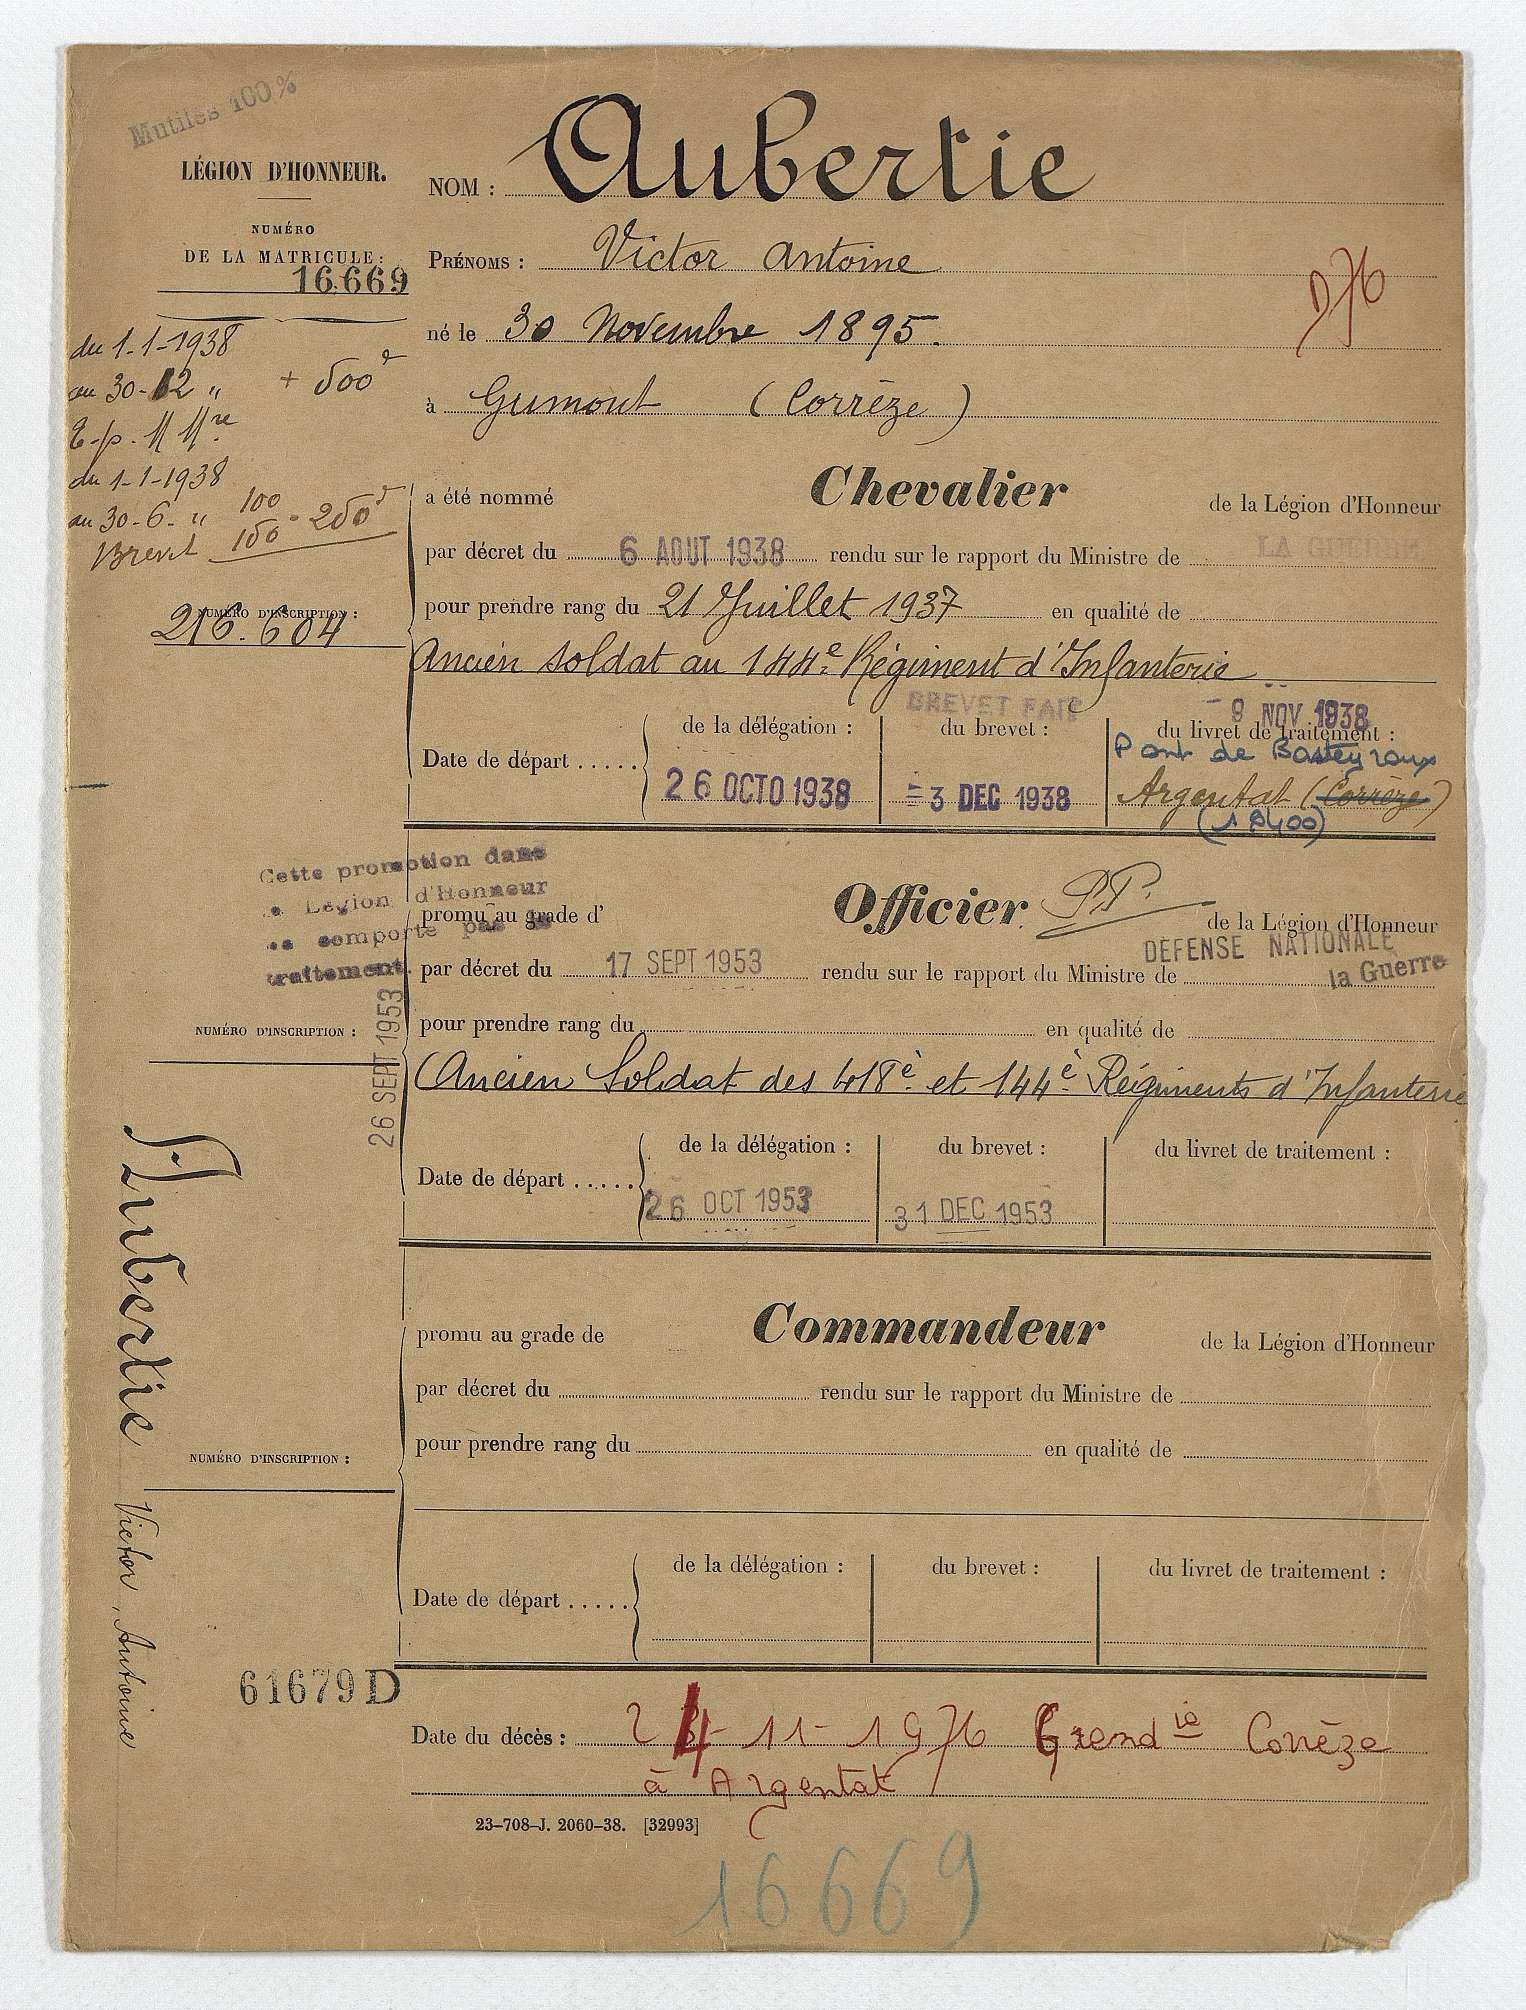 Mutilés 100%
LÉGION D'HONNEUR.
NUMÉRO
DE LA MATRICULE:
16.669
NOM : Aubertie
PRÉNOMS : Victor Antoine
D76
né le 30 Novembre 1895.
à Gumont (Corrèze)
du 1-1-1938
au 30-12 " + 500
du 1-1-1938
au 30-6- " 100
Brevet 150 = 250
NUMÉRO D'INSCRIPTION :
216.604
a été nommé Chevalier de la Légion d'Honneur
par décret du 6 AOUT 1938 rendu sur le rapport du Ministre de LA GUERRE
pour prendre rang du 21 Juillet 1937 en qualité de
Ancien soldat au 144e Régiment d'Infanterie
BREVET FAIT
- 9 NOV 1938
de la délégation : du brevet : du livret de traitement :
Pont de Basteyroux
Date de départ ..... 26 OCTO 1938 - 3 DEC 1938 Argentat (Corrèze)
(19400)
Cette promotion dans
la Légion d'Honneur
ne comporte pas de
traitement.
26 SEPT 1953
promu au grade d' Officier P.P. de la Légion d'Honneur
DEFENSE NATIONALE
la Guerre
par décret du 17 SEPT 1953 rendu sur le rapport du Ministre de
NUMÉRO D'INSCRIPTION :
pour prendre rang du en qualité de
Ancien Soldat des 418è et 144è Régiments d'Infanterie
de la délégation : du brevet : du livret de traitement :
Date de départ ..... 26 OCT 1953 31 DEC 1953
promu au grade de Commandeur de la Légion d'Honneur
par décret du rendu sur le rapport du Ministre de
pour prendre rang du en qualité de
NUMÉRO D'INSCRIPTION :
de la délégation : du brevet : du livret de traitement :
Date de départ .....
Aubertie Victor, Antoine
61679 D
Date du décès : 24-11-1976 Gend ie Corrèze
à Argentat
23-708-J. 2060-38. [32993]
16669